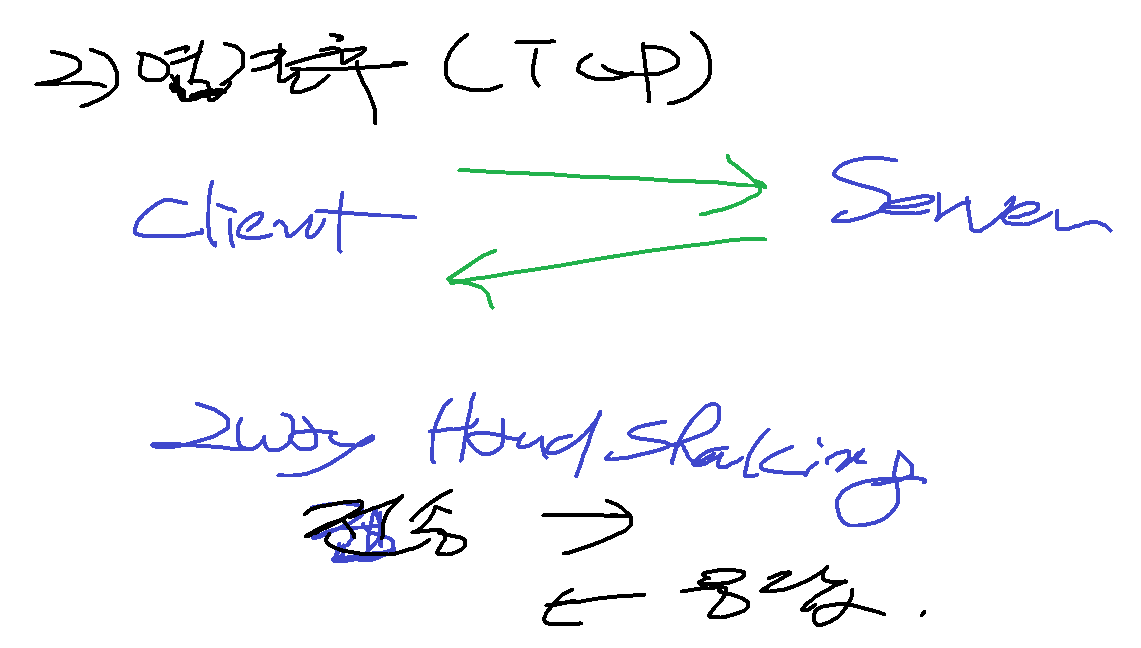 2) 연결후 (TCP)
Client Server
2way HandShaking
전송 →
← 응답.